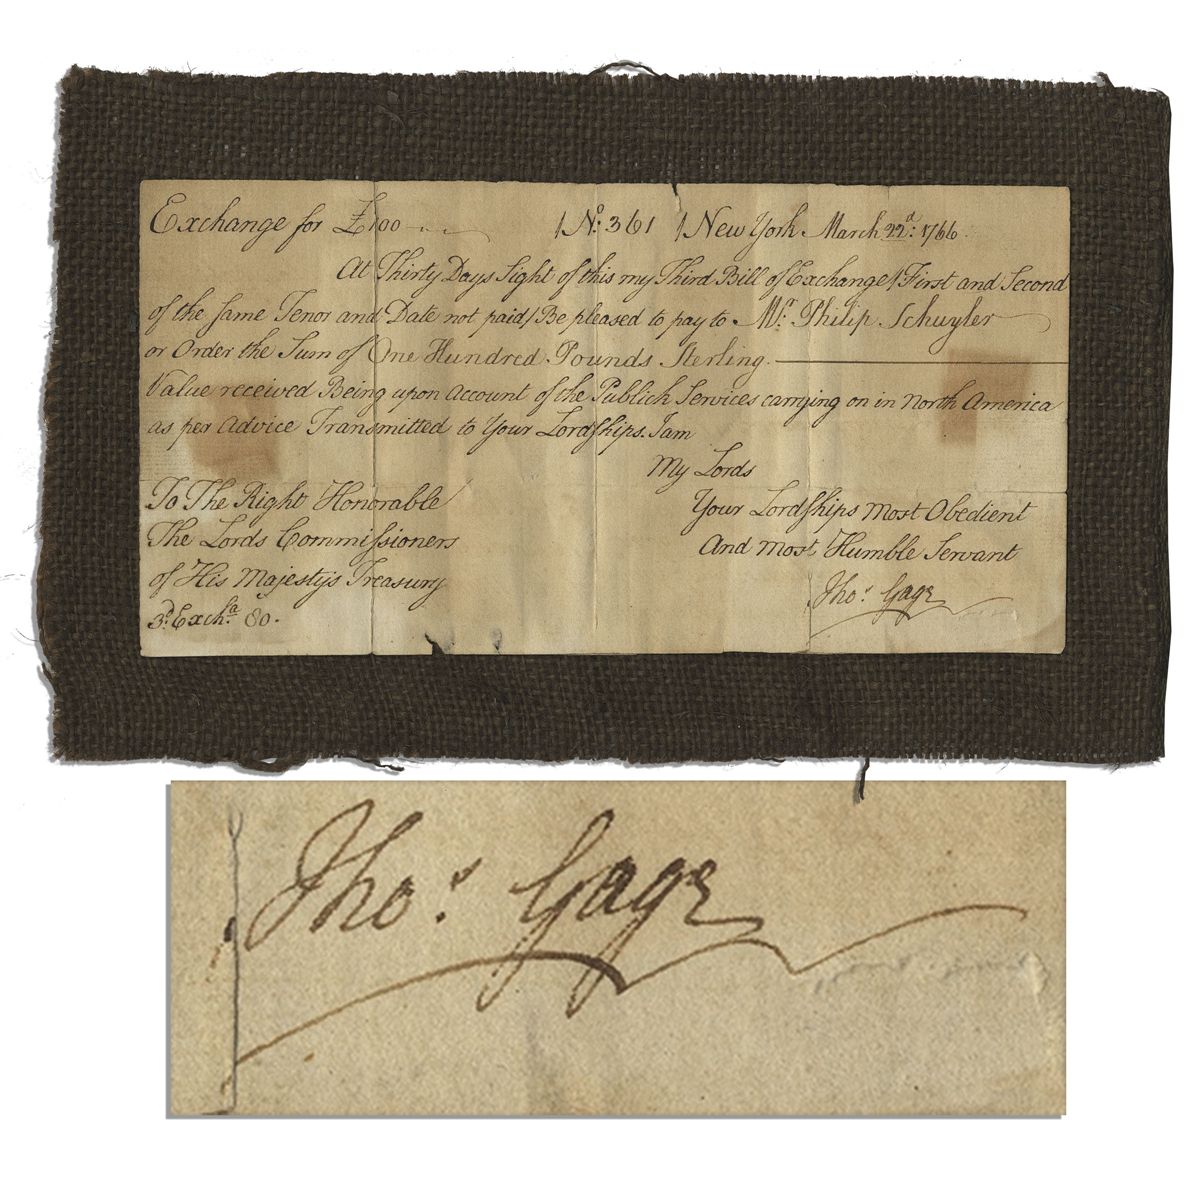 Exchange for £100 / No. 361 / New York March 22d: 1766
At Thirty Days Sight of this my Third Bill of Exchange / First and Second
of the same Tenor and Date not paid / Be pleased to pay to Mr. Philip Schuyler
or Order the Sum of One Hundred Pounds Sterling.
Value received Being upon Account of the Publick Services carrying on in North America
as per Advice Transmitted to Your Lordships. I am
My Lords
Your Lordships Most Obedient
And most Humble Servant
Thos. Gage
To The Right Honorable
The Lords Commissioners
of His Majestys Treasury
3d. Excha. 80.
Thos. Gage